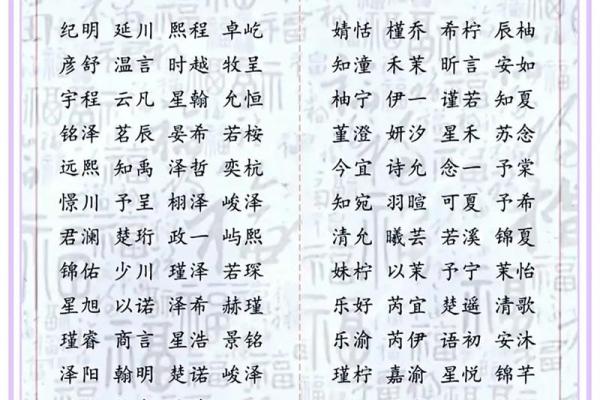 纪明 延川 熙程 卓屹
彦舒 温言 时越 牧呈
宇程 云凡 星翰 允恒
铭泽 茗辰 晏希 若桉
远熙 知禹 泽哲 奕杭
憬川 予呈 栩泽 峻泽
君澜 楚珩 政一 屿熙
锦佑 少川 瑾泽 若琛
星旭 以诺 泽希 赫瑾
瑾睿 商言 星浩 景铭
泽阳 翰明 楚诺 峻泽
婧恬 槿乔 希柠 辰柚
知潼 禾茉 昕言 安如
柚宁 伊一 谨若 知夏
堇澄 妍汐 星禾 苏念
今宜 诗允 念一 予棠
知宛 羽暄 可夏 予希
清允 曦芸 若溪 锦夏
妹柠 以茉 予宁 茉怡
乐好 芮宜 楚遥 清歌
乐渝 芮伊 语初 安沐
瑾柠 嘉渝 星悦 锦芊